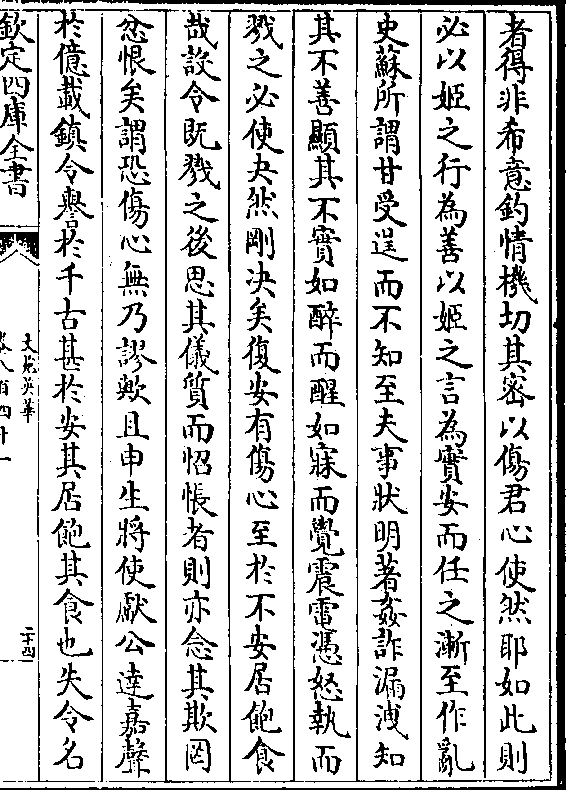 者得非希意釣情機切其密以傷君心使然耶如此則
必以姬之行為善以姬之言為實安而任之漸至作亂
史蘇所謂甘受逞而不知至夫事狀明著姦詐漏洩知
其不善顯其不實如醉而醒如寐而覺震雷憑怒執而
戮之必使夬然剛決矣復安有傷心至於不安居飽食
哉設令既戮之後思其儀質而怊悵者則亦念其欺罔
忿恨矣謂恐傷心無乃謬歟且申生將使獻公達嘉聲
於億載鎮令譽於千古甚於安其居飽其食也失令名
欽定四庫全書
文苑英華
卷八百四十一
二十四